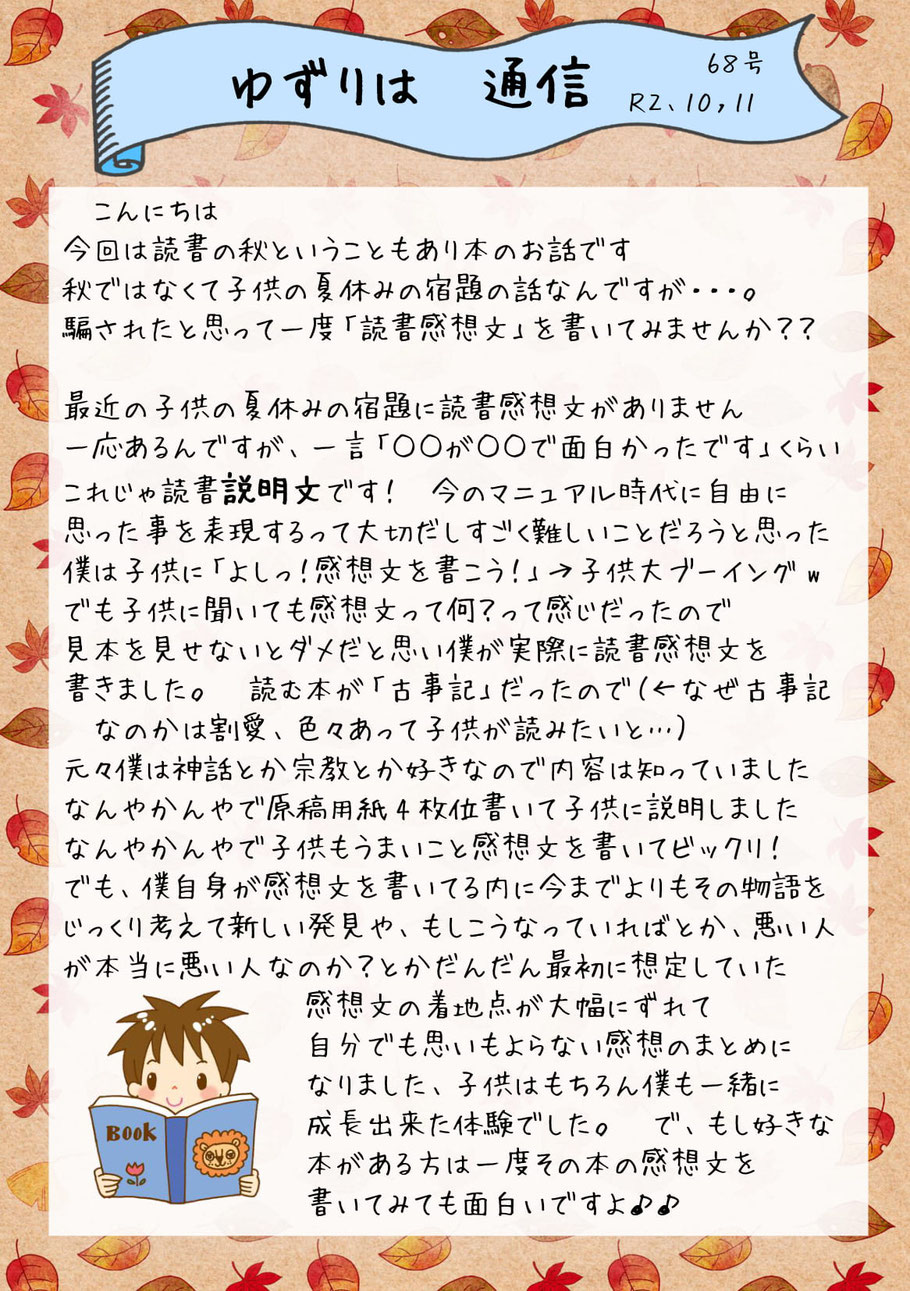 ゆずりは 通信
68号
R2、10,11
こんにちは
今回は読書の秋ということもあり本のお話です
秋ではなくて子供の夏休みの宿題の話なんですが・・・。
騙されたと思って一度「読書感想文」を書いてみませんか??
最近の子供の夏休みの宿題に読書感想文がありません
一応あるんですが、一言「〇〇が〇〇で面白かったです」くらい
これじゃ読書説明文です! 今のマニュアル時代に自由に
思った事を表現するって大切だしすごく難しいことだろうと思った
僕は子供に「よしっ!感想文を書こう!」→子供大ブーイングw
でも子供に聞いても感想文って何?って感じだったので
見本を見せないとダメだと思い僕が実際に読書感想文を
書きました。 読む本が「古事記」だったので(←なぜ古事記
なのかは割愛、色々あって子供が読みたいと…)
元々僕は神話とか宗教とか好きなので内容は知っていました
なんやかんやで原稿用紙4枚位書いて子供に説明しました
なんやかんやで子供もうまいこと感想文を書いてビックリ!
でも、僕自身が感想文を書いてる内に今までよりもその物語を
じっくり考えて新しい発見や、もしこうなっていればとか、悪い人
が本当に悪い人なのか?とかだんだん最初に想定していた
感想文の着地点が大幅にずれて
自分でも思いもよらない感想のまとめに
なりました、子供はもちろん僕も一緒に
成長出来た体験でした。 で、もし好きな
本がある方は一度その本の感想文を
書いてみても面白いですよ♪♪
BOOK